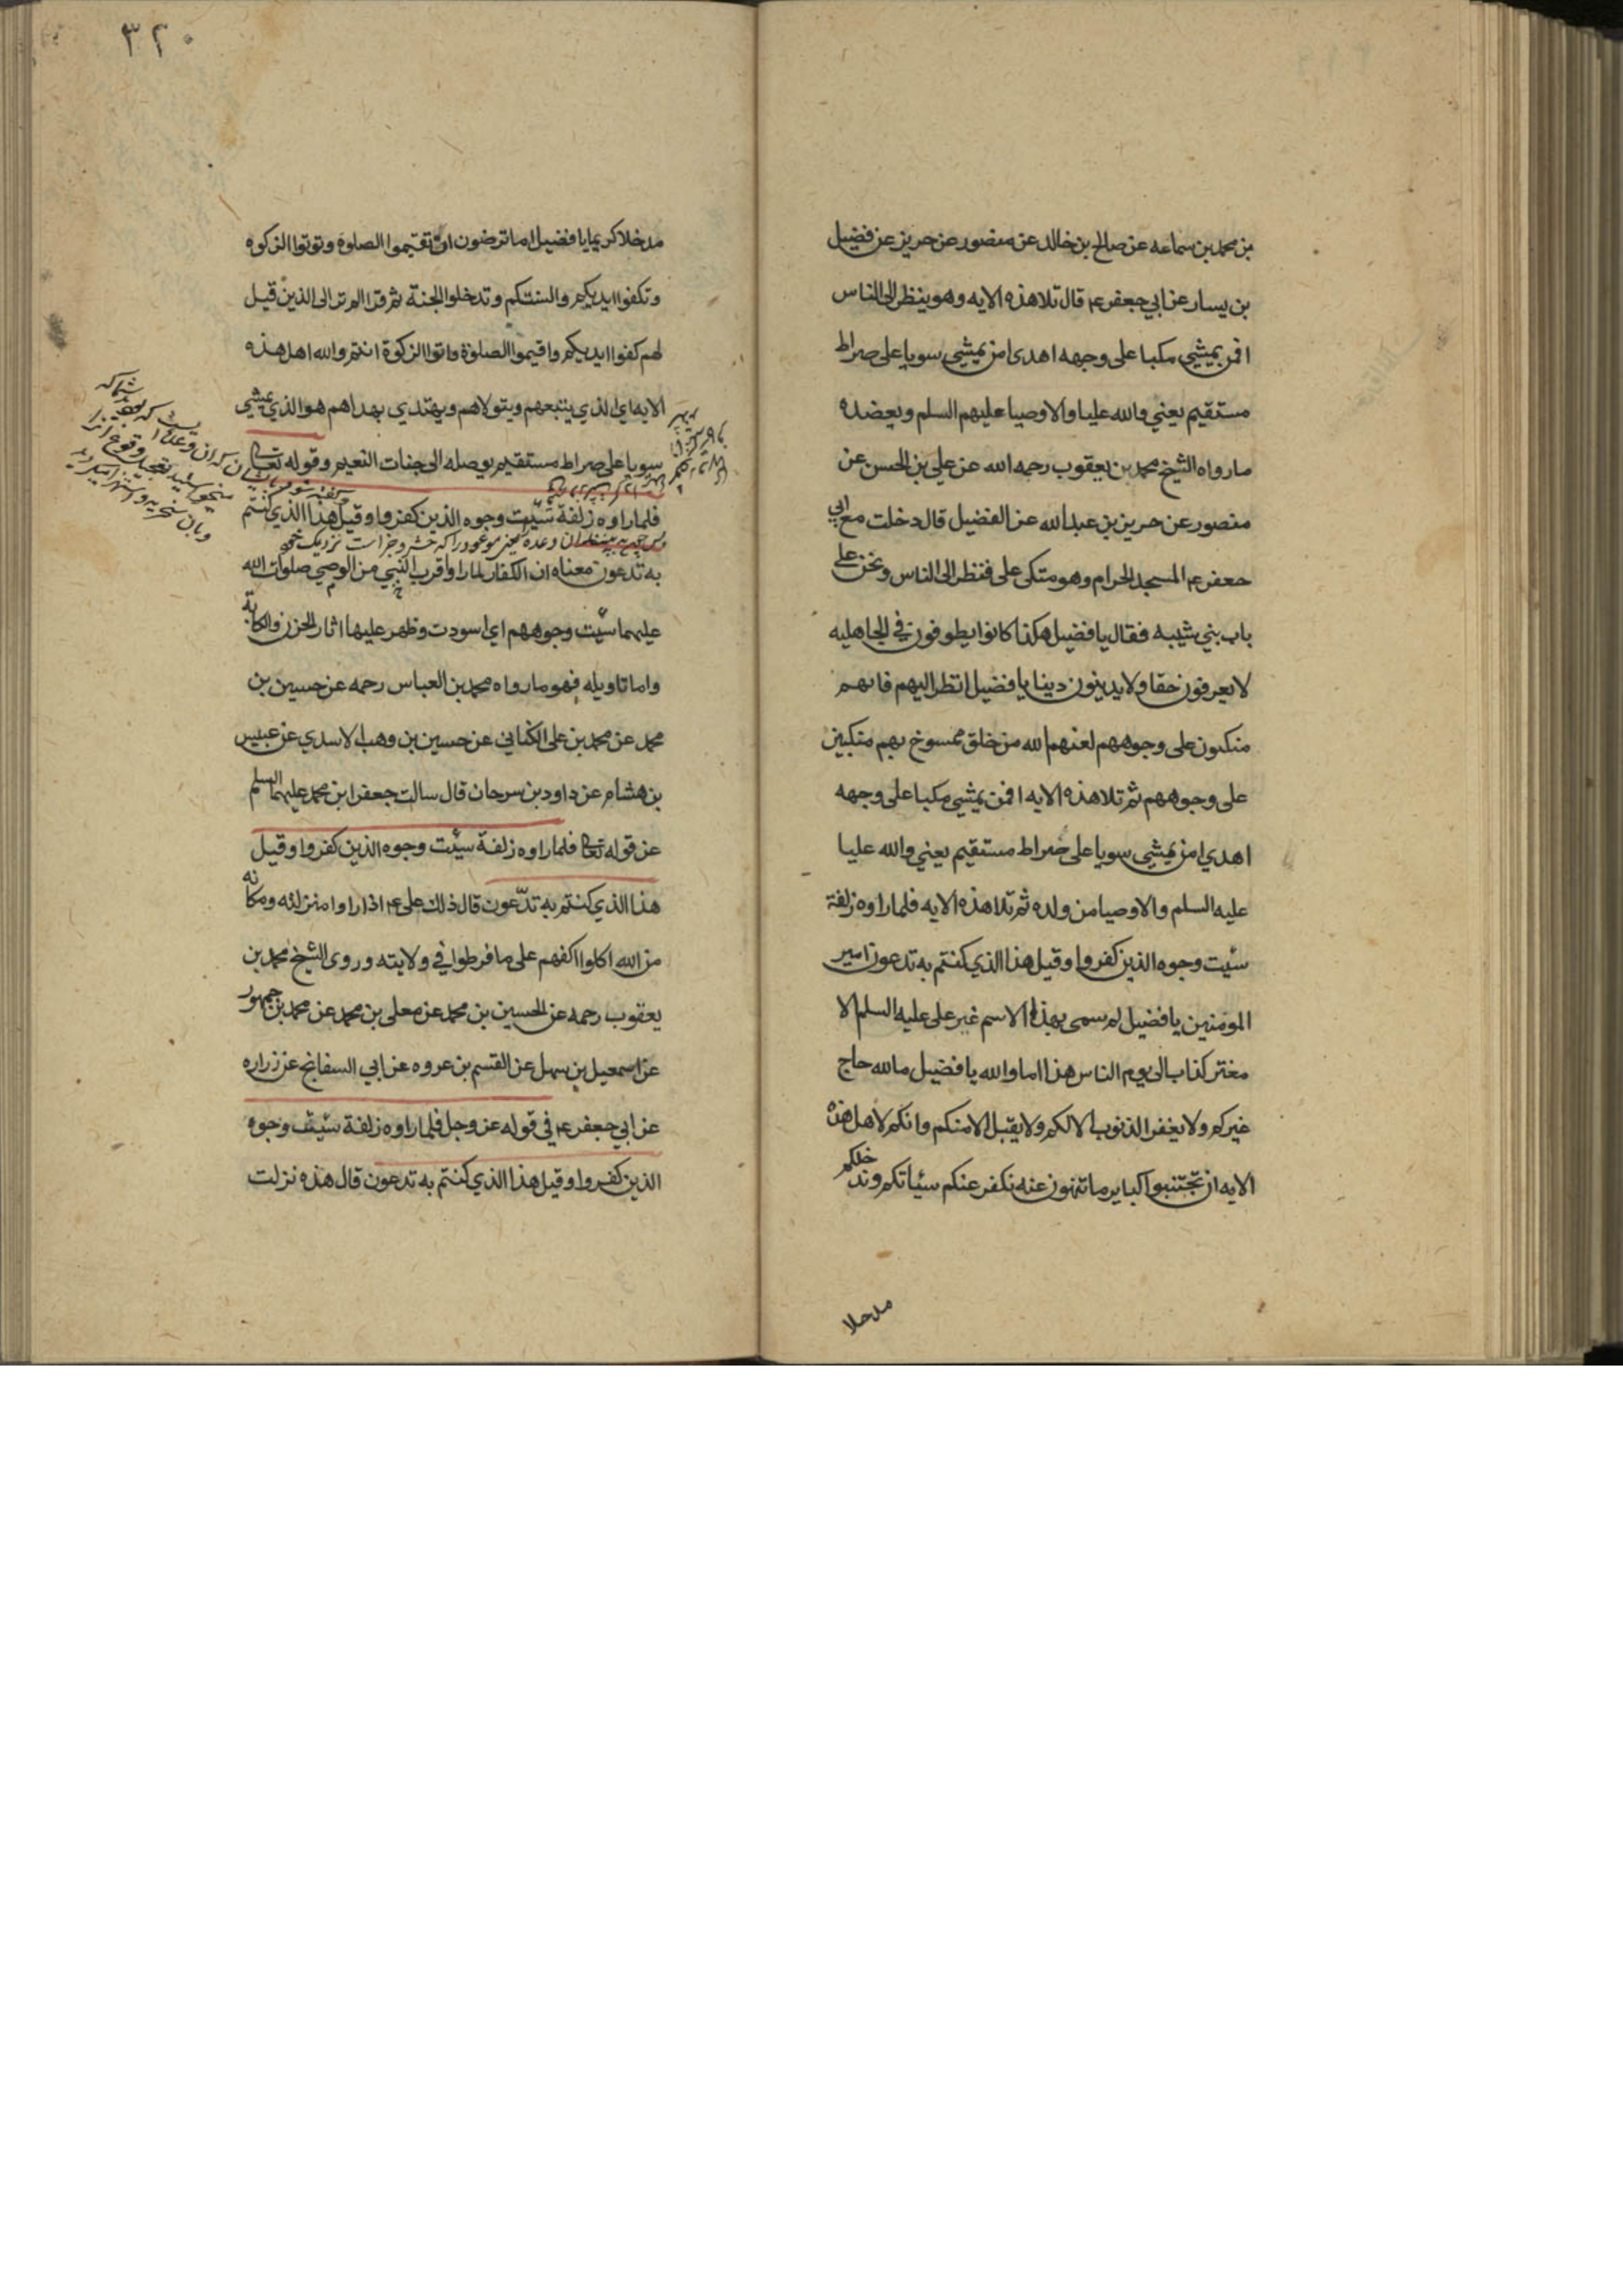 بن محمد بن سماعه عن صالح بن خالد عن منصور عن حريز عن فضيل
بن يسار عن ابي جعفر ع قال تلا هذه الايه وهو ينظر الى الناس
افمن يمشي مكبا على وجهه اهدى امن يمشي سويا على صراط
مستقيم يعني والله عليا والاوصيا عليهم السلم ويعضده
مارواه الشيخ محمد بن يعقوب رحمه الله عن علي بن الحسن عن
منصور عن حريز بن عبدالله عن الفضيل قال دخلت مع ابي
جعفر ع المسجد الحرام وهو متكى على فنظر الى الناس ونحن على
باب بني شيبه فقال يا فضيل هكذا كانوا يطوفون في الجاهليه
لا يعرفون حقا ولا يدينون دينا يا فضيل انظر اليهم فانهم
منكبون على وجوههم لعنهم الله من خلق ممسوخ بهم متكبين
على وجوههم ثم تلا هذه الايه افمن يمشي مكبا على وجهه
اهدي امن يمشي سويا على صراط مستقيم يعني والله عليا
عليه السلم والاوصيا من ولده ثم تلا هذه الايه فلما راوه زلفة
سيئت وجوه الذين كفروا وقيل هذا الذي كنتم به تدعون امير
المومنين يا فضيل لم يسمى بهذا الاسم غير على عليه السلم الا
مفتر كذاب الى يوم الناس هذا اما والله يا فضيل ما لله حاج
غيركم ولا يغفر الذنوب الا لكم ولا يقبل الا منكم وانكم لاهل هذه
الايه ان تجتنبوا كباير ما تنهون عنه نكفر عنكم سيئاتكم وندخلكم
مدخلا
٣٢٠
مدخلا كريما يا فضيل اما ترضون ان تقيموا الصلوة وتوتوا الزكوه
وتكفوا ايديكم والسنتكم وتدخلوا الجنة ثم قرا الم تر الى الذين قيل
لهم كفوا ايديكم واقيموا الصلوة واتوا الزكوة انتم والله اهل هذه
الايه اي الذي يتبعهم ويتولاهم ويهتدي بهداهم هو الذي يمشي
سويا على صراط مستقيم يوصله الى جنات النعيم وقوله تعالى
فلما راوه زلفة سيئت وجوه الذين كفروا وقيل هذا الذي كنتم
به تدعون معناه ان الكفار لما راوا قرب النبي من الوصي صلوات الله
عليهما سيئت وجوههم اي اسودت وظهر عليها اثار الحزن والكابة
واما تاويله فهو مارواه محمد بن العباس رحمه عن حسين بن
محمد عن محمد بن على الكناني عن حسين بن وهب الاسدي عن عبيس
بن هشام عن داود بن سرحان قال سالت جعفر ابن محمد عليهما السلم
عن قوله تعالى فلما راوه زلفة سيئت وجوه الذين كفروا وقيل
هذا الذي كنتم به تدعون قال ذلك على ع اذا راوا منزلته ومكانه
من الله اكلوا اكفهم على ما فرطوا في ولايته وروى الشيخ محمد بن
يعقوب رحمه عن الحسين بن محمد عن معلى بن محمد عن محمد بن جمهور
عن اسمعيل بن سهل عن القسم بن عروه عن ابي السفاتج عن زراره
عن ابي جعفر ع في قوله عز وجل فلما راوه زلفة سيئت وجوه
الذين كفروا وقيل هذا الذي كنتم به تدعون قال هذه نزلت